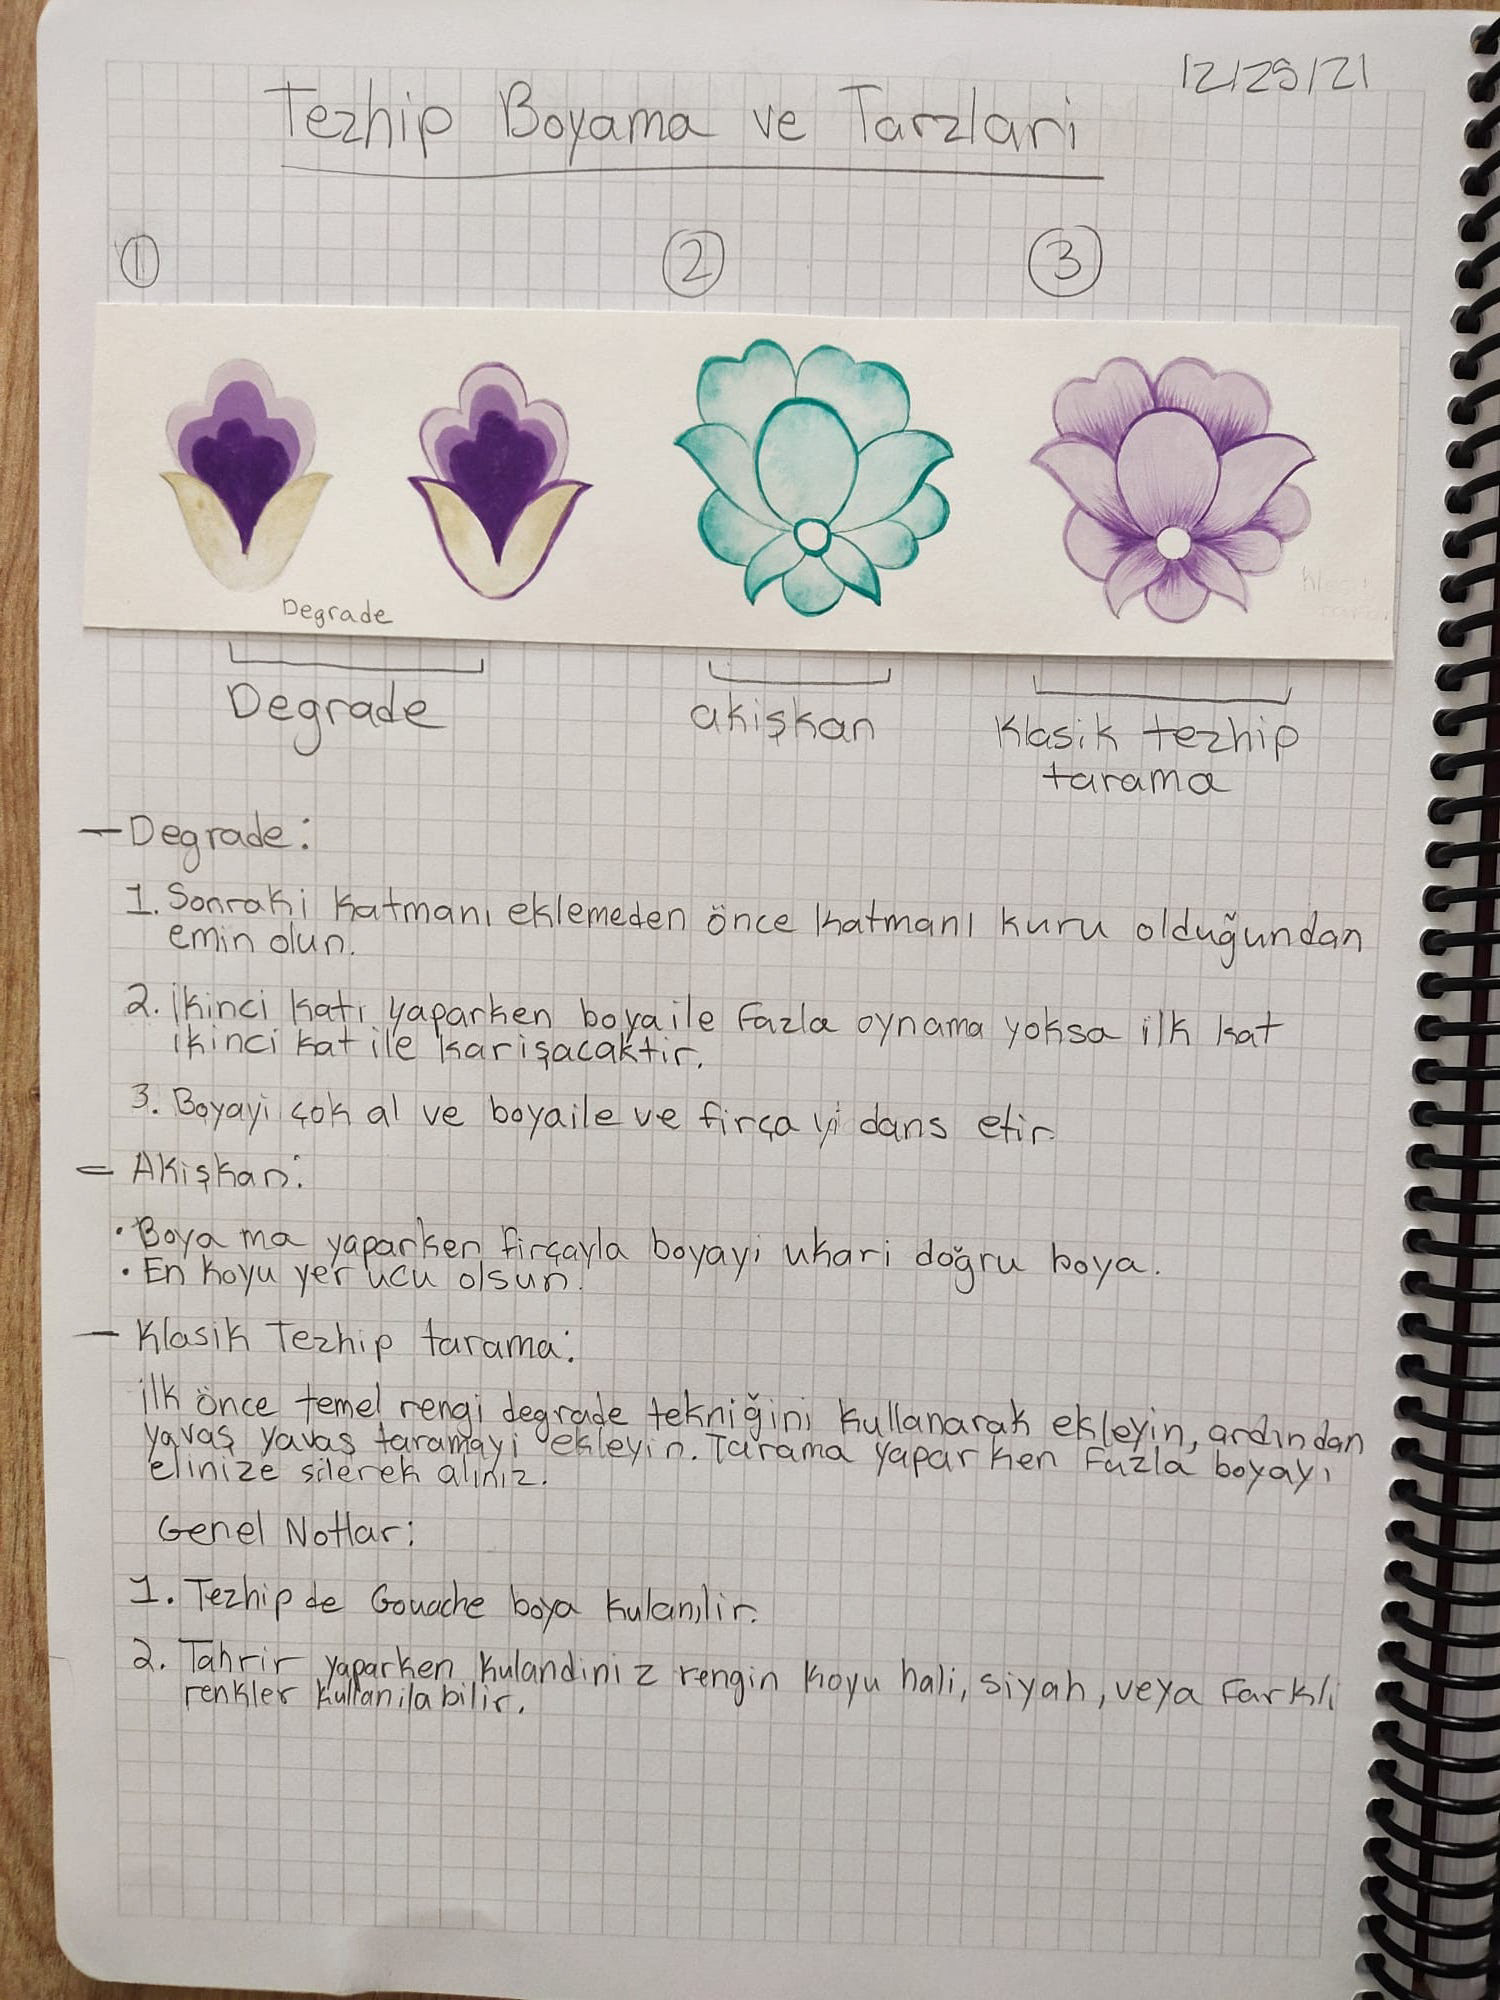 12/25/21
Tezhip Boyama ve Tarzlari
1 2 3
Degrade
Degrade akişkan Klasik tezhip
tarama
- Degrade:
1. Sonraki katmanı eklemeden önce katmanı kuru olduğundan
emin olun.
2. ikinci katı yaparken boya ile fazla oynama yoksa ilk kat
ikinci kat ile karişacaktir.
3. Boyayi çok al ve boya ile ve firça yi dans etir
- Akişkan:
• Boya ma yaparken firçayla boyayi ukari doğru boya.
• En koyu yer ucu olsun.
- Klasik Tezhip tarama:
ilk önce temel rengi degrade tekniğini kullanarak ekleyin, ardından
yavaş yavaş taramayi ekleyin. Tarama yapar ken fazla boyayı
elinize silerek aliniz.
Genel Notlar:
1. Tezhip de Gouache boya kulanılir.
2. Tahrir yaparken kulandiniz rengin koyu hali, siyah, veya farklı
renkler kullanilabilir.